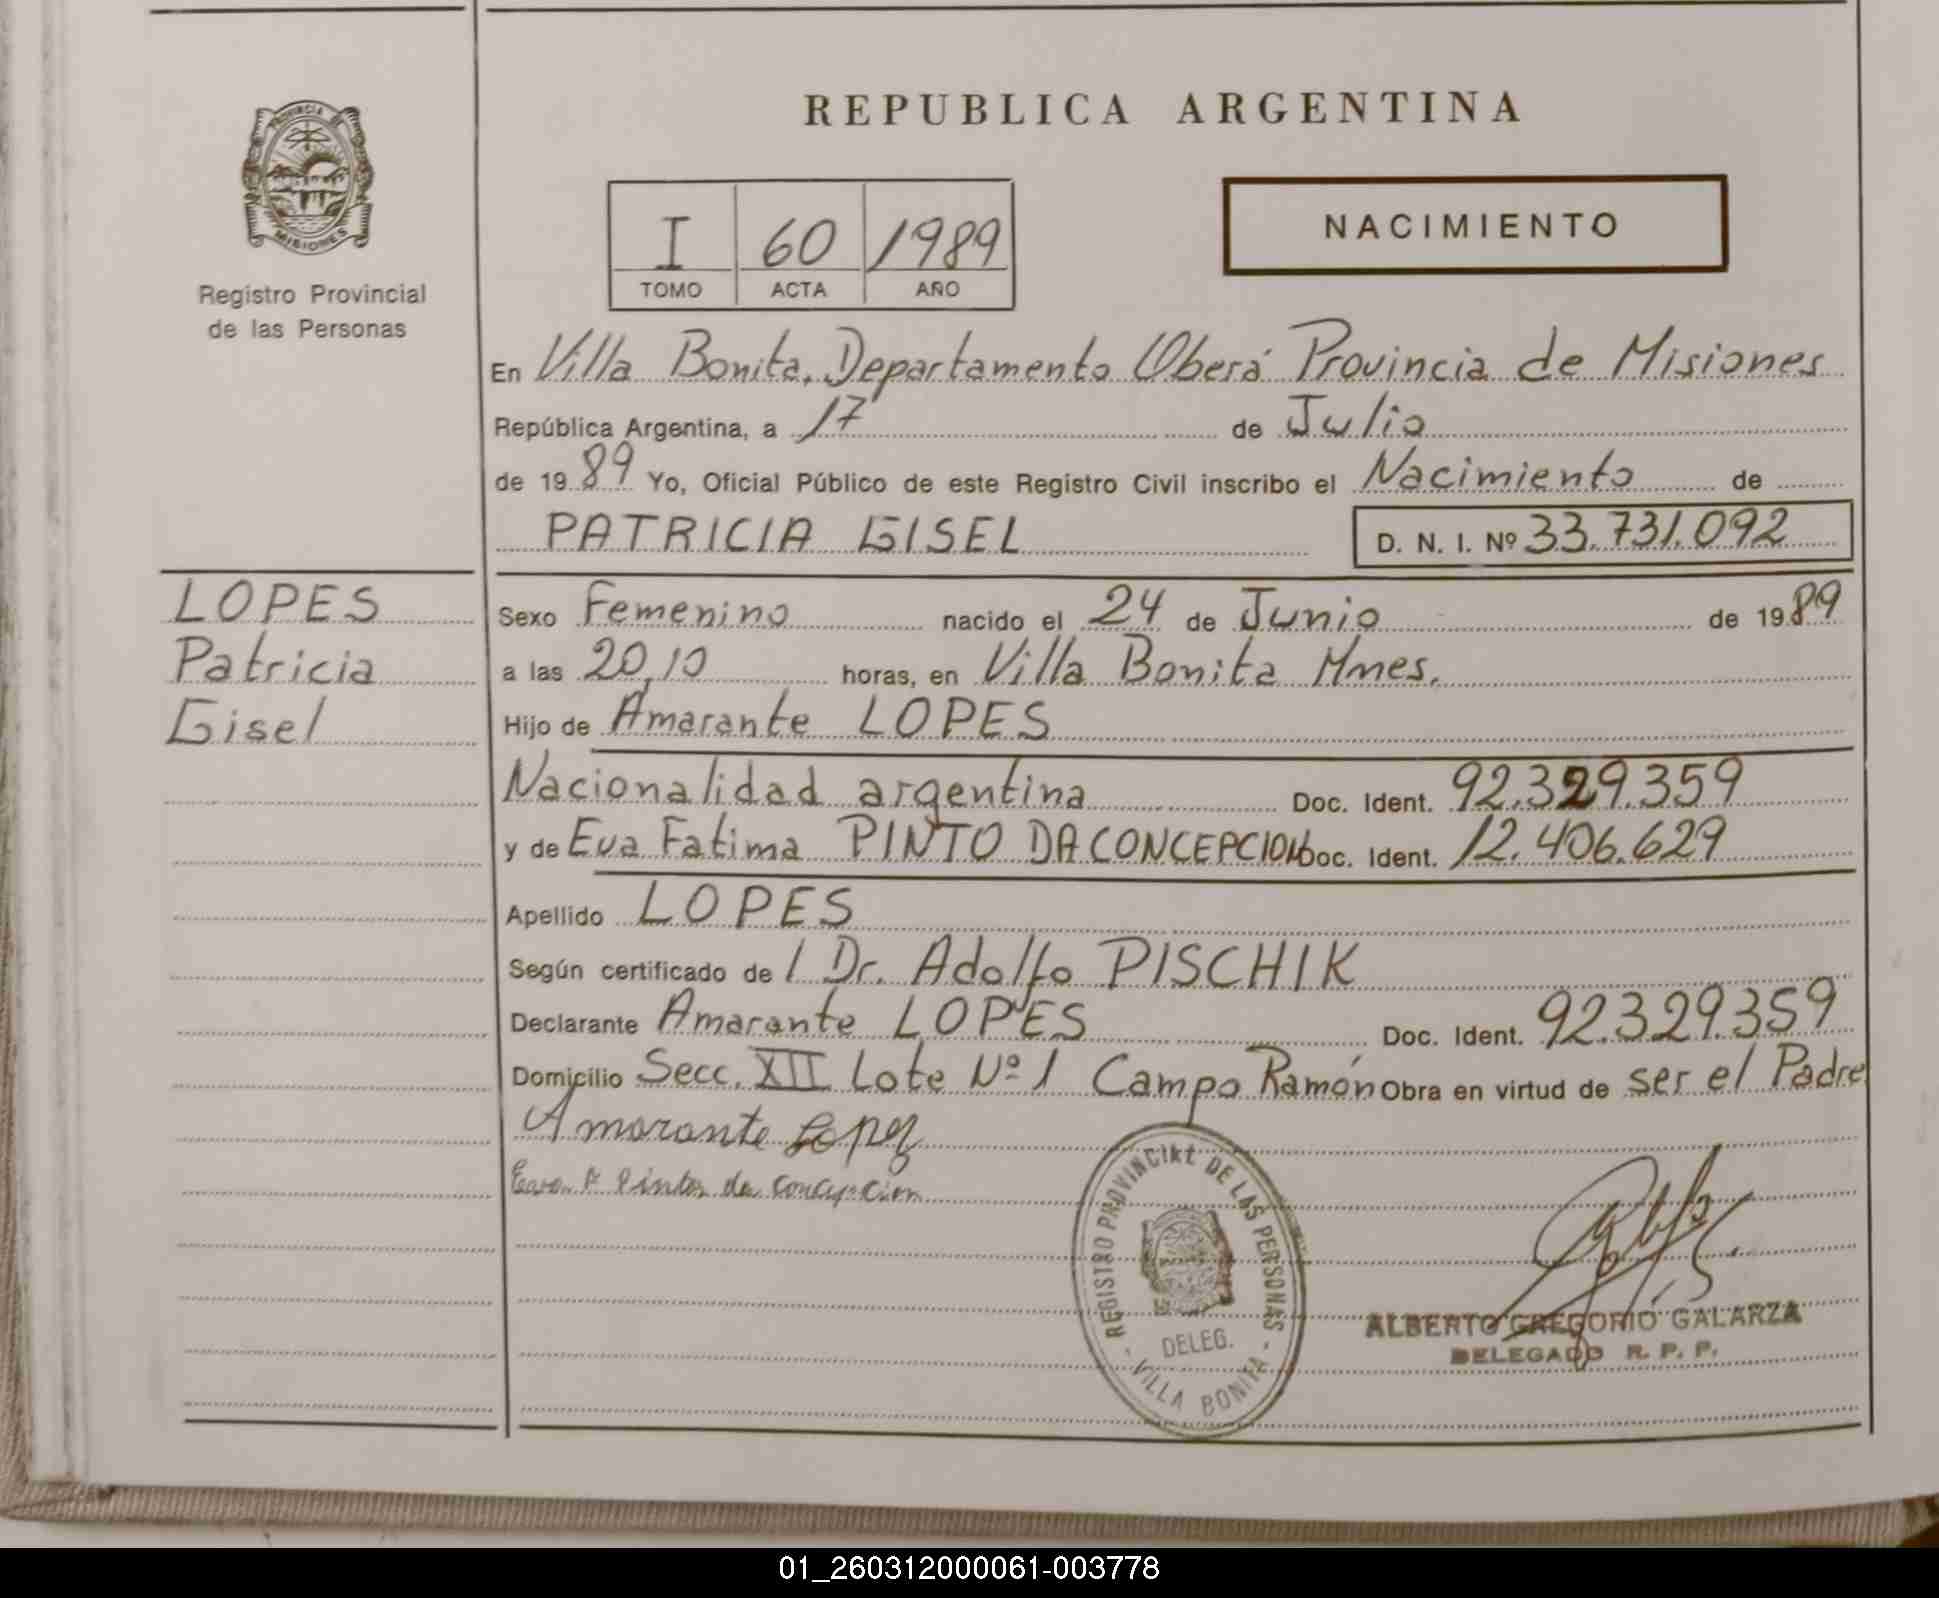 REPUBLICA ARGENTINA
PROVINCIA DE
MISIONES
Registro Provincial
de las Personas
I 60 1989
TOMO ACTA AÑO
NACIMIENTO
En Villa Bonita, Departamento Oberá Provincia de Misiones
República Argentina, a 17 de Julio
de 1989 Yo, Oficial Público de este Registro Civil inscribo el Nacimiento de
PATRICIA GISEL D. N. I. Nº 33.731.092
LOPES
Patricia
Gisel
Sexo Femenino nacido el 24 de Junio de 1989
a las 20,10 horas, en Villa Bonita Mnes.
Hijo de Amarante LOPES
Nacionalidad argentina Doc. Ident. 92.329.359
y de Eva Fatima PINTO DA CONCEPCION Doc. Ident. 12.406.629
Apellido LOPES
Según certificado de / Dr. Adolfo PISCHIK
Declarante Amarante LOPES Doc. Ident. 92.329.359
Domicilio Secc. XII Lote Nº 1 Campo Ramón Obra en virtud de ser el Padre
Amarante Lopez
Eva F Pinto da concepcion
REGISTRO PROVINCIAL DE LAS PERSONAS
DELEG.
VILLA BONITA
ALBERTO GREGORIO GALARZA
DELEGADO R. P. P.
01_260312000061-003778